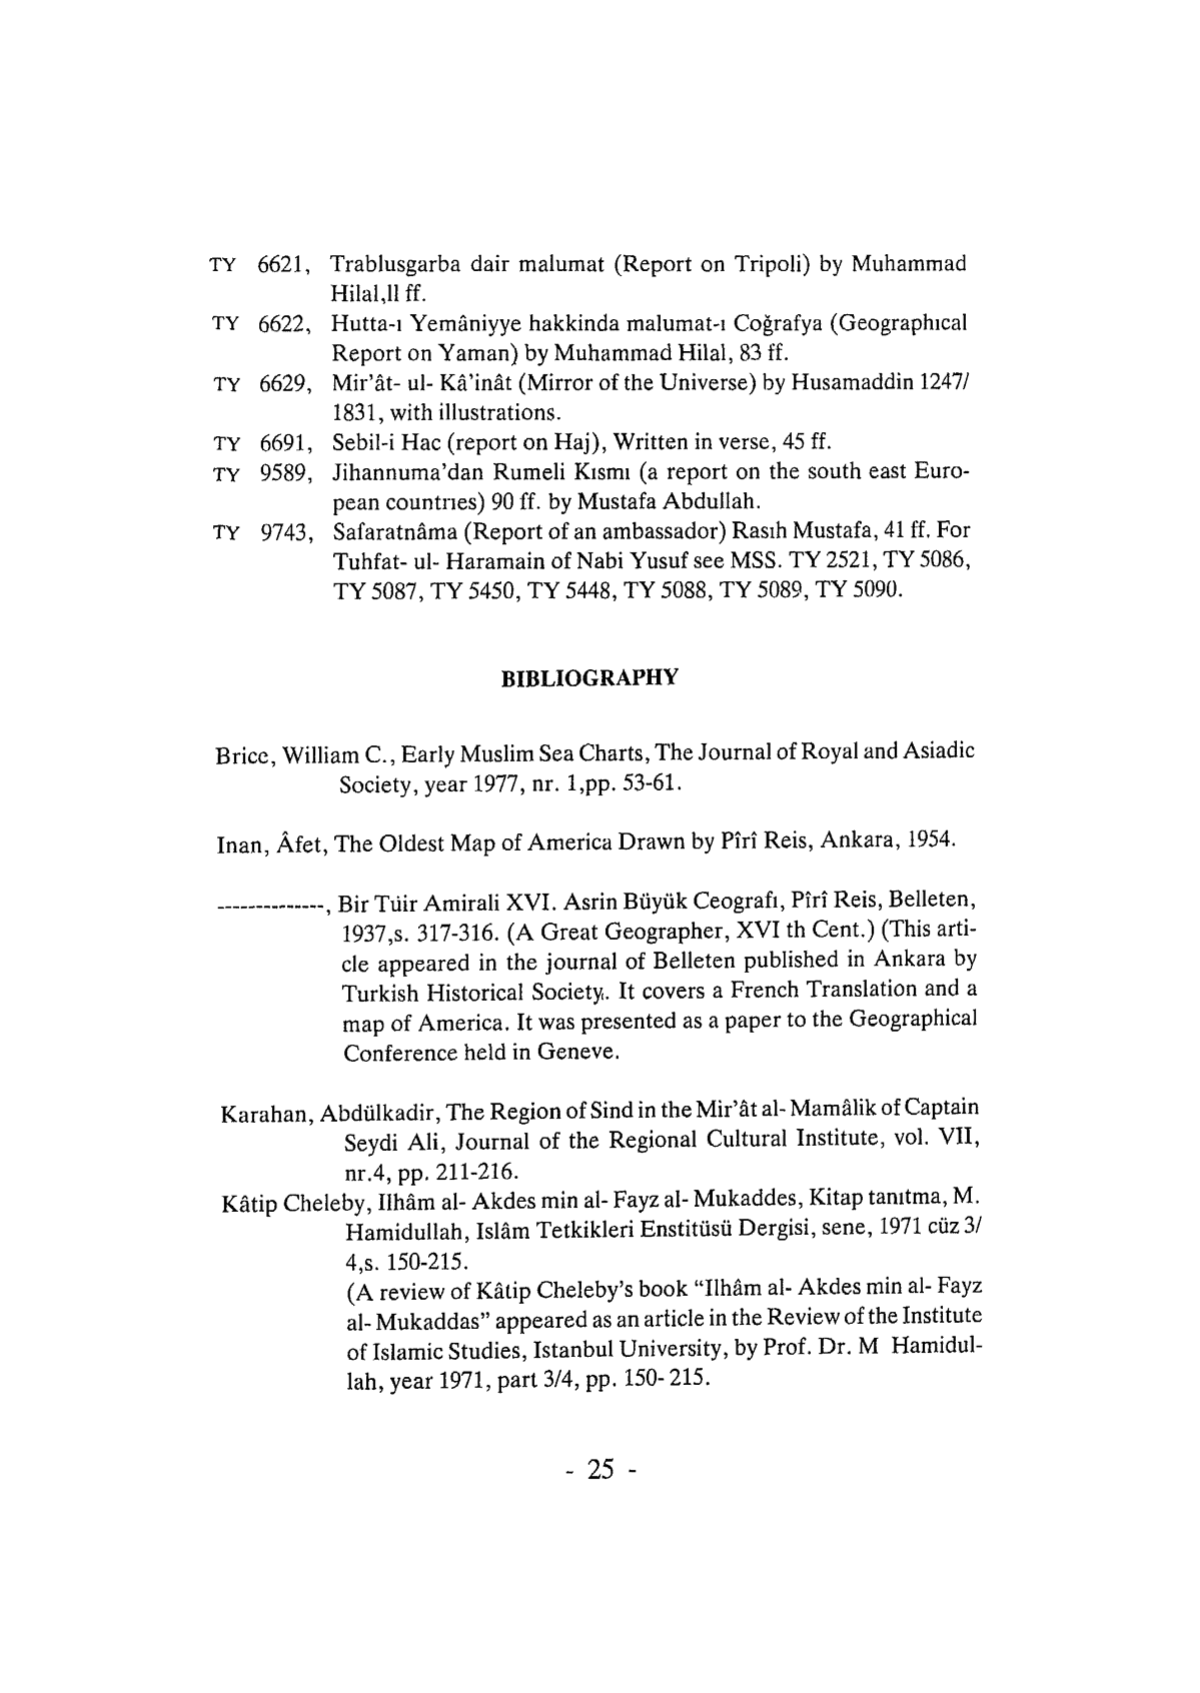 TY 6621, Trablusgarba dair malumat (Report on Tripoli) by Muhammad
Hilal,ll ff.
TY 6622, Hutta-ı Yemâniyye hakkinda malumat-ı Coğrafya (Geographıcal
Report on Yaman) by Muhammad Hilal, 83 ff.
TY 6629, Mir’ât- ul- Kâ’inât (Mirror of the Universe) by Husamaddin 1247/
1831, with illustrations.
TY 6691, Sebil-i Hac (report on Haj), Written in verse, 45 ff.
TY 9589, Jihannuma’dan Rumeli Kısmı (a report on the south east Euro-
pean countrıes) 90 ff. by Mustafa Abdullah.
TY 9743, Safaratnâma (Report of an ambassador) Rasıh Mustafa, 41 ff. For
Tuhfat- ul- Haramain of Nabi Yusuf see MSS. TY 2521, TY 5086,
TY 5087, TY 5450, TY 5448, TY 5088, TY 5089, TY 5090.
BIBLIOGRAPHY
Brice, William C., Early Muslim Sea Charts, The Journal of Royal and Asiadic
Society, year 1977, nr. 1,pp. 53-61.
Inan, Âfet, The Oldest Map of America Drawn by Pîrî Reis, Ankara, 1954.
--------------, Bir Tüir Amirali XVI. Asrin Büyük Ceografı, Pîrî Reis, Belleten,
1937,s. 317-316. (A Great Geographer, XVI th Cent.) (This arti-
cle appeared in the journal of Belleten published in Ankara by
Turkish Historical Society,. It covers a French Translation and a
map of America. It was presented as a paper to the Geographical
Conference held in Geneve.
Karahan, Abdülkadir, The Region of Sind in the Mir’ât al- Mamâlik of Captain
Seydi Ali, Journal of the Regional Cultural Institute, vol. VII,
nr.4, pp. 211-216.
Kâtip Cheleby, Ilhâm al- Akdes min al- Fayz al- Mukaddes, Kitap tanıtma, M.
Hamidullah, Islâm Tetkikleri Enstitüsü Dergisi, sene, 1971 cüz 3/
4,s. 150-215.
(A review of Kâtip Cheleby’s book “Ilhâm al- Akdes min al- Fayz
al- Mukaddas” appeared as an article in the Review of the Institute
of Islamic Studies, Istanbul University, by Prof. Dr. M Hamidul-
lah, year 1971, part 3/4, pp. 150- 215.
- 25 -